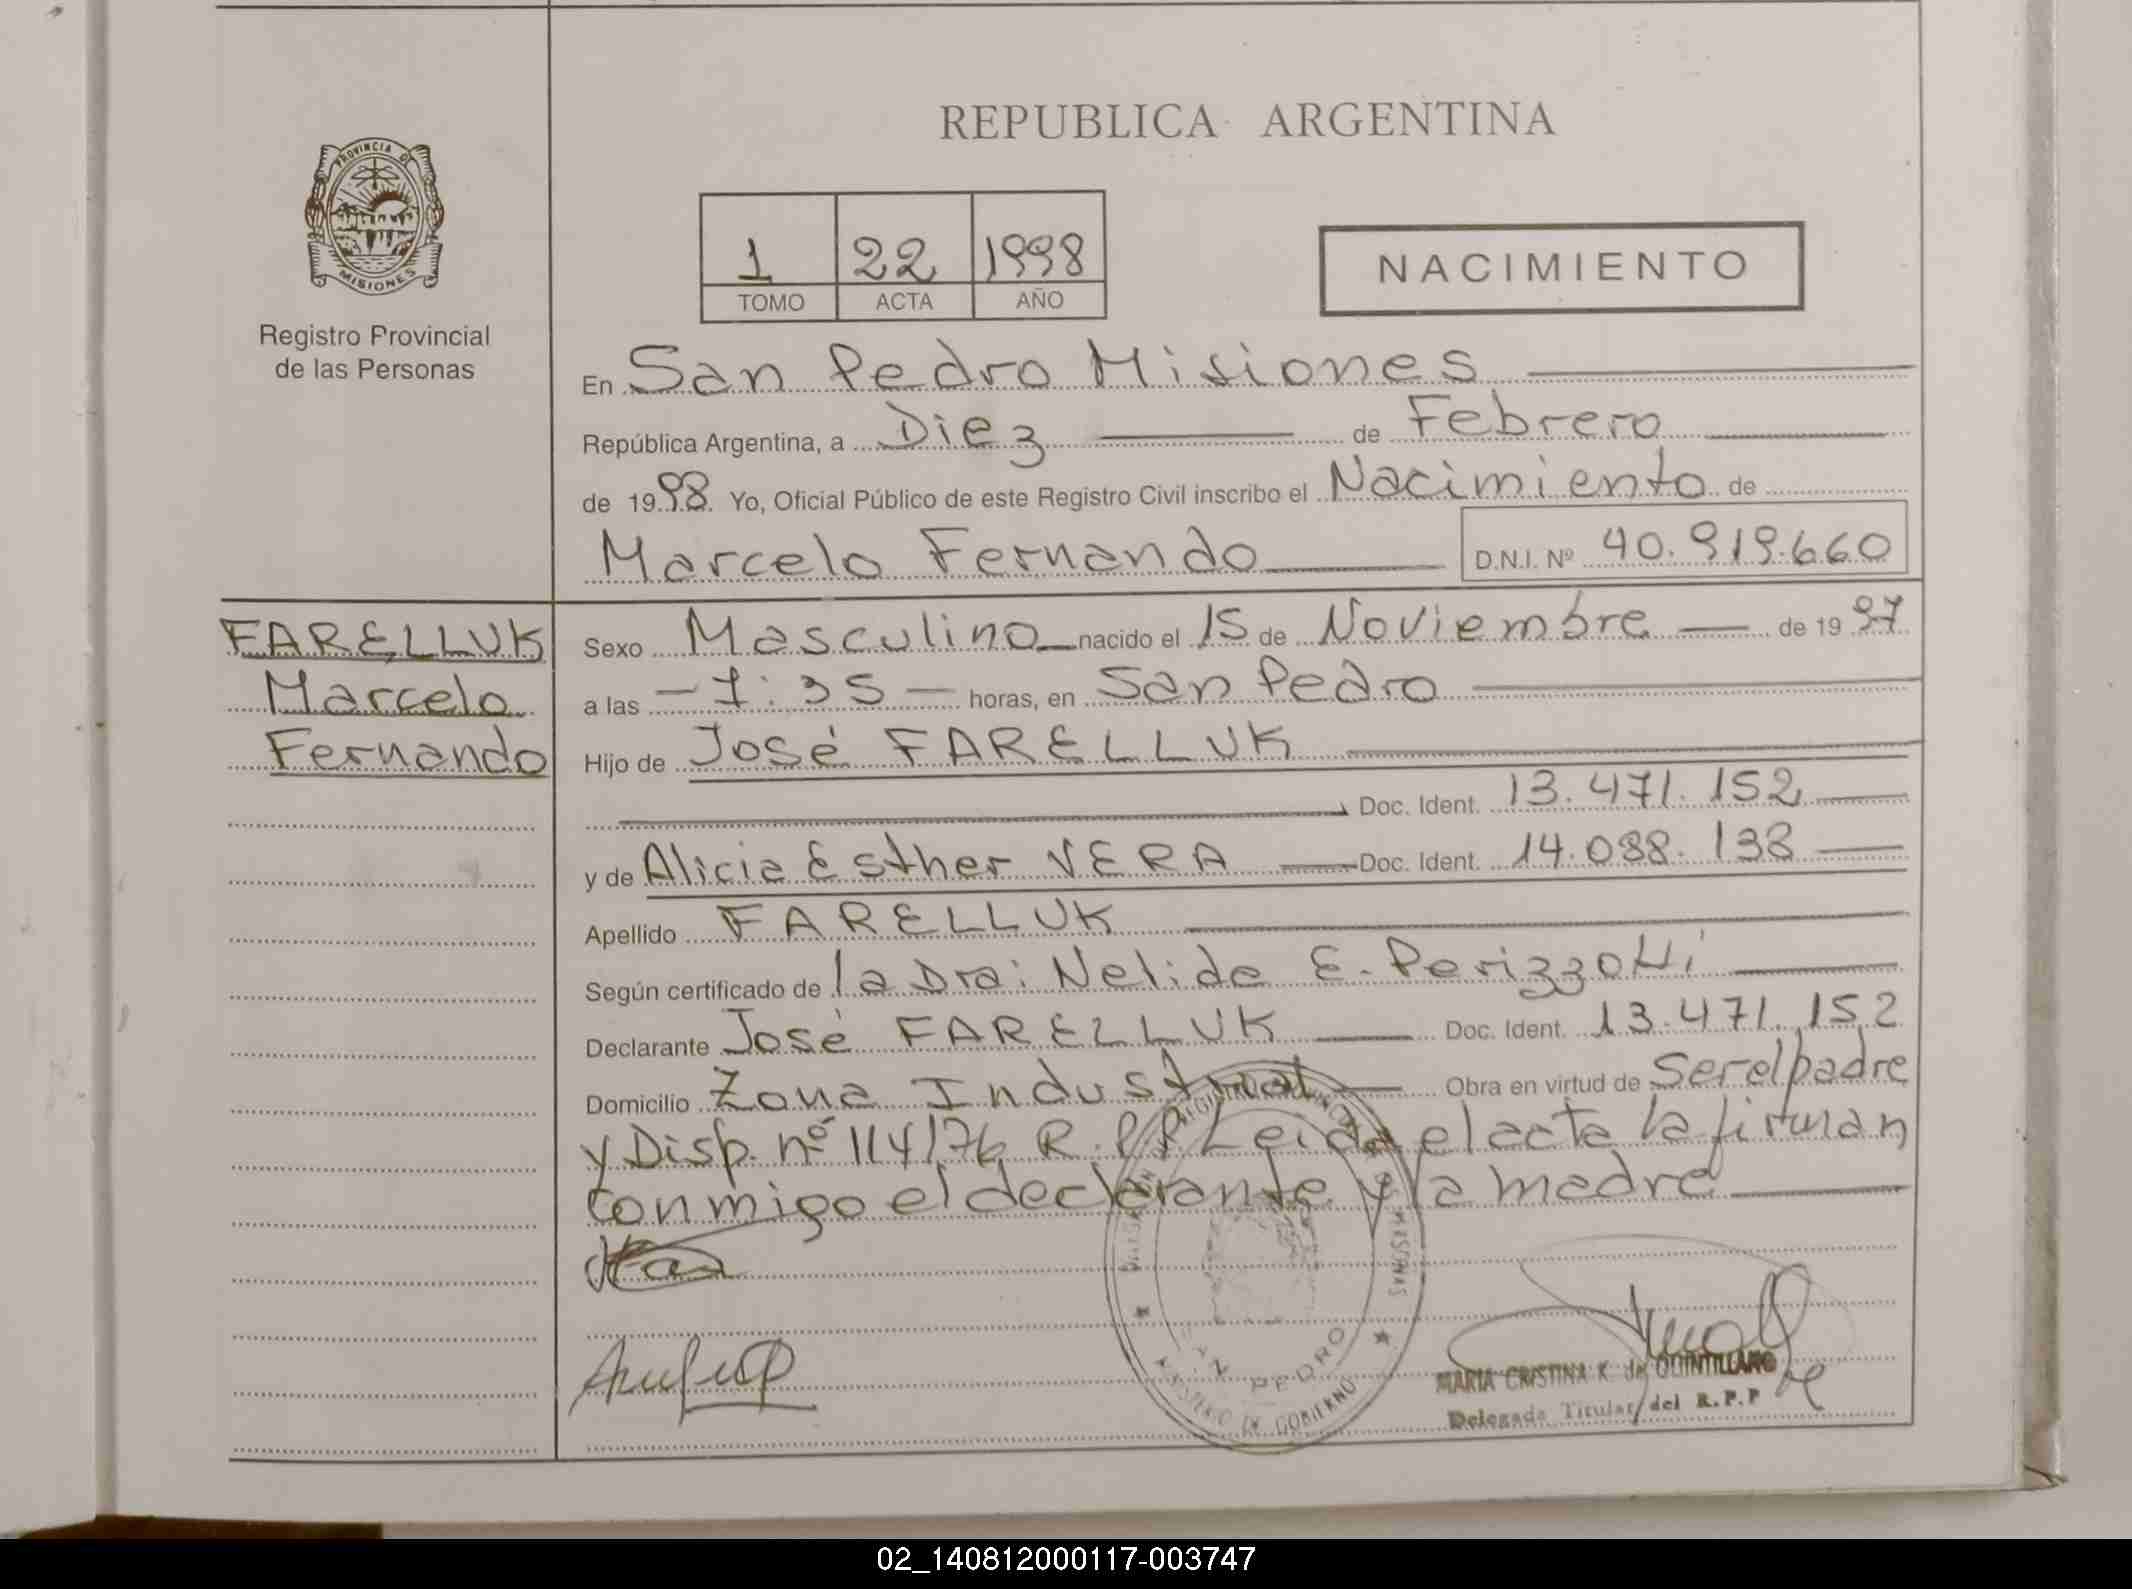 REPUBLICA ARGENTINA
PROVINCIA DE
MISIONES
Registro Provincial
de las Personas
1 22 1998
TOMO ACTA AÑO
NACIMIENTO
En San Pedro Misiones
República Argentina, a Diez de Febrero
de 1998. Yo, Oficial Público de este Registro Civil inscribo el Nacimiento de
Marcelo Fernando D.N.I. Nº 40.919.660
FARELLUK
Marcelo
Fernando
Sexo Masculino nacido el 15 de Noviembre de 1997
a las 7:35 horas, en San Pedro
Hijo de José FARELLUK
Doc. Ident. 13.471.152
y de Alicia Esther VERA Doc. Ident. 14.088.138
Apellido FARELLUK
Según certificado de la Dra: Nelida E. Perizzotti
Declarante José FARELLUK Doc. Ident. 13.471.152
Domicilio Zona Industrial Obra en virtud de Ser el padre
y Disp. nº 114/76 R.P.P. Leida el acta la firman
conmigo el declarante y la madre
SAN PEDRO
MINISTERIO DE GOBIERNO
MARIA CRISTINA K. de QUINTILLANO
Delegada Titular del R.P.P
02_140812000117-003747